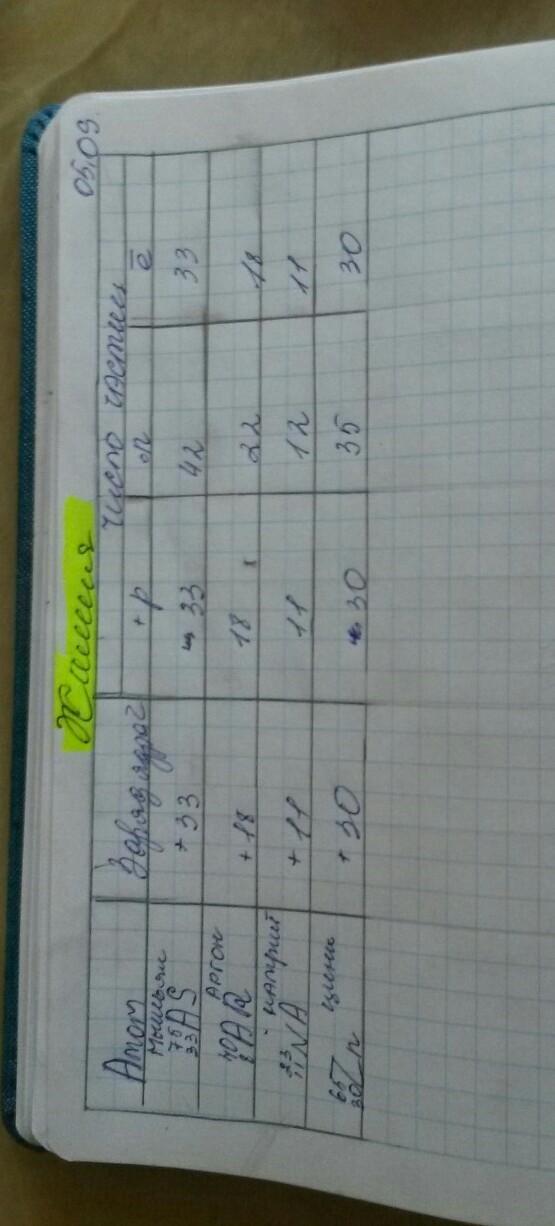 05.09.
Химия
Атом Заряд ядра Число частиц
+p n ē
Мышьяк
75
33 AS +33 33 42 33
Аргон
40
18 AR +18 18 22 18
натрий
23
11 NA +11 11 12 11
цинк
65
30 Zn +30 30 35 30